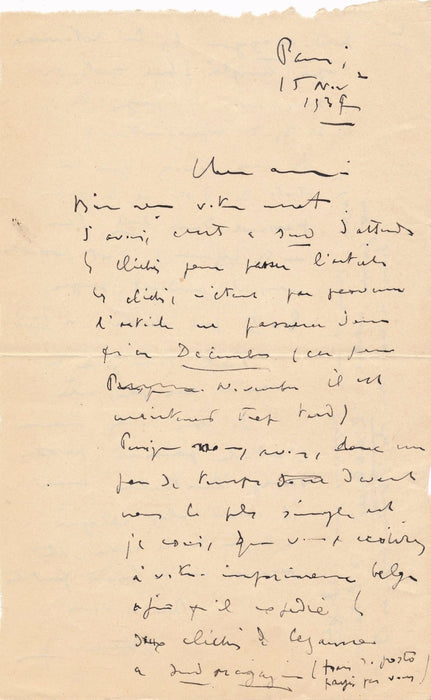 Paris
15 Nov
Cher ami
Bien reçu votre mot.
J'avais écrit à Sud d'attendre
les clichés pour passer l'article
les clichés n'étant pas parvenus
l'article ne passera donc
qu'en Décembre (car pour
Novembre il est
maintenant trop tard)
Puisque nous avons donc un
peu de temps devant
nous le plus simple est
je crois, que vous écriviez
à votre imprimeur belge
afin qu'il expédie les
deux clichés de
à Sud Magazine (frais de poste
payés par vous)